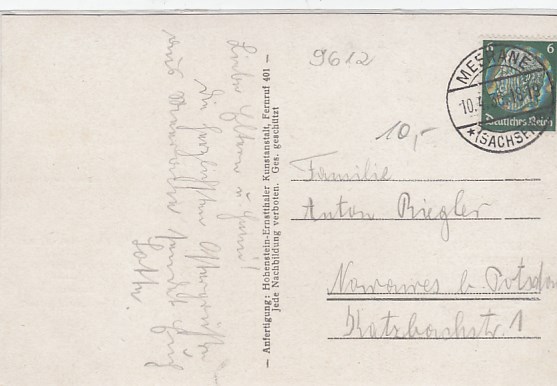 Liebe Eltern u.
Die herzlichsten Ostergrüße
aus
sendet Euch
Lotte.
— Anfertigung: Hohenstein-Ernstthaler Kunstanstalt, Fernruf 401 —
Jede Nachbildung verboten. Ges. geschützt
9612
6 6
Deutsches Reich
10.4
(SACHS
10,-
Familie
Anton Riegler
Nowawes b. Potsda
Katzbachstr. 1